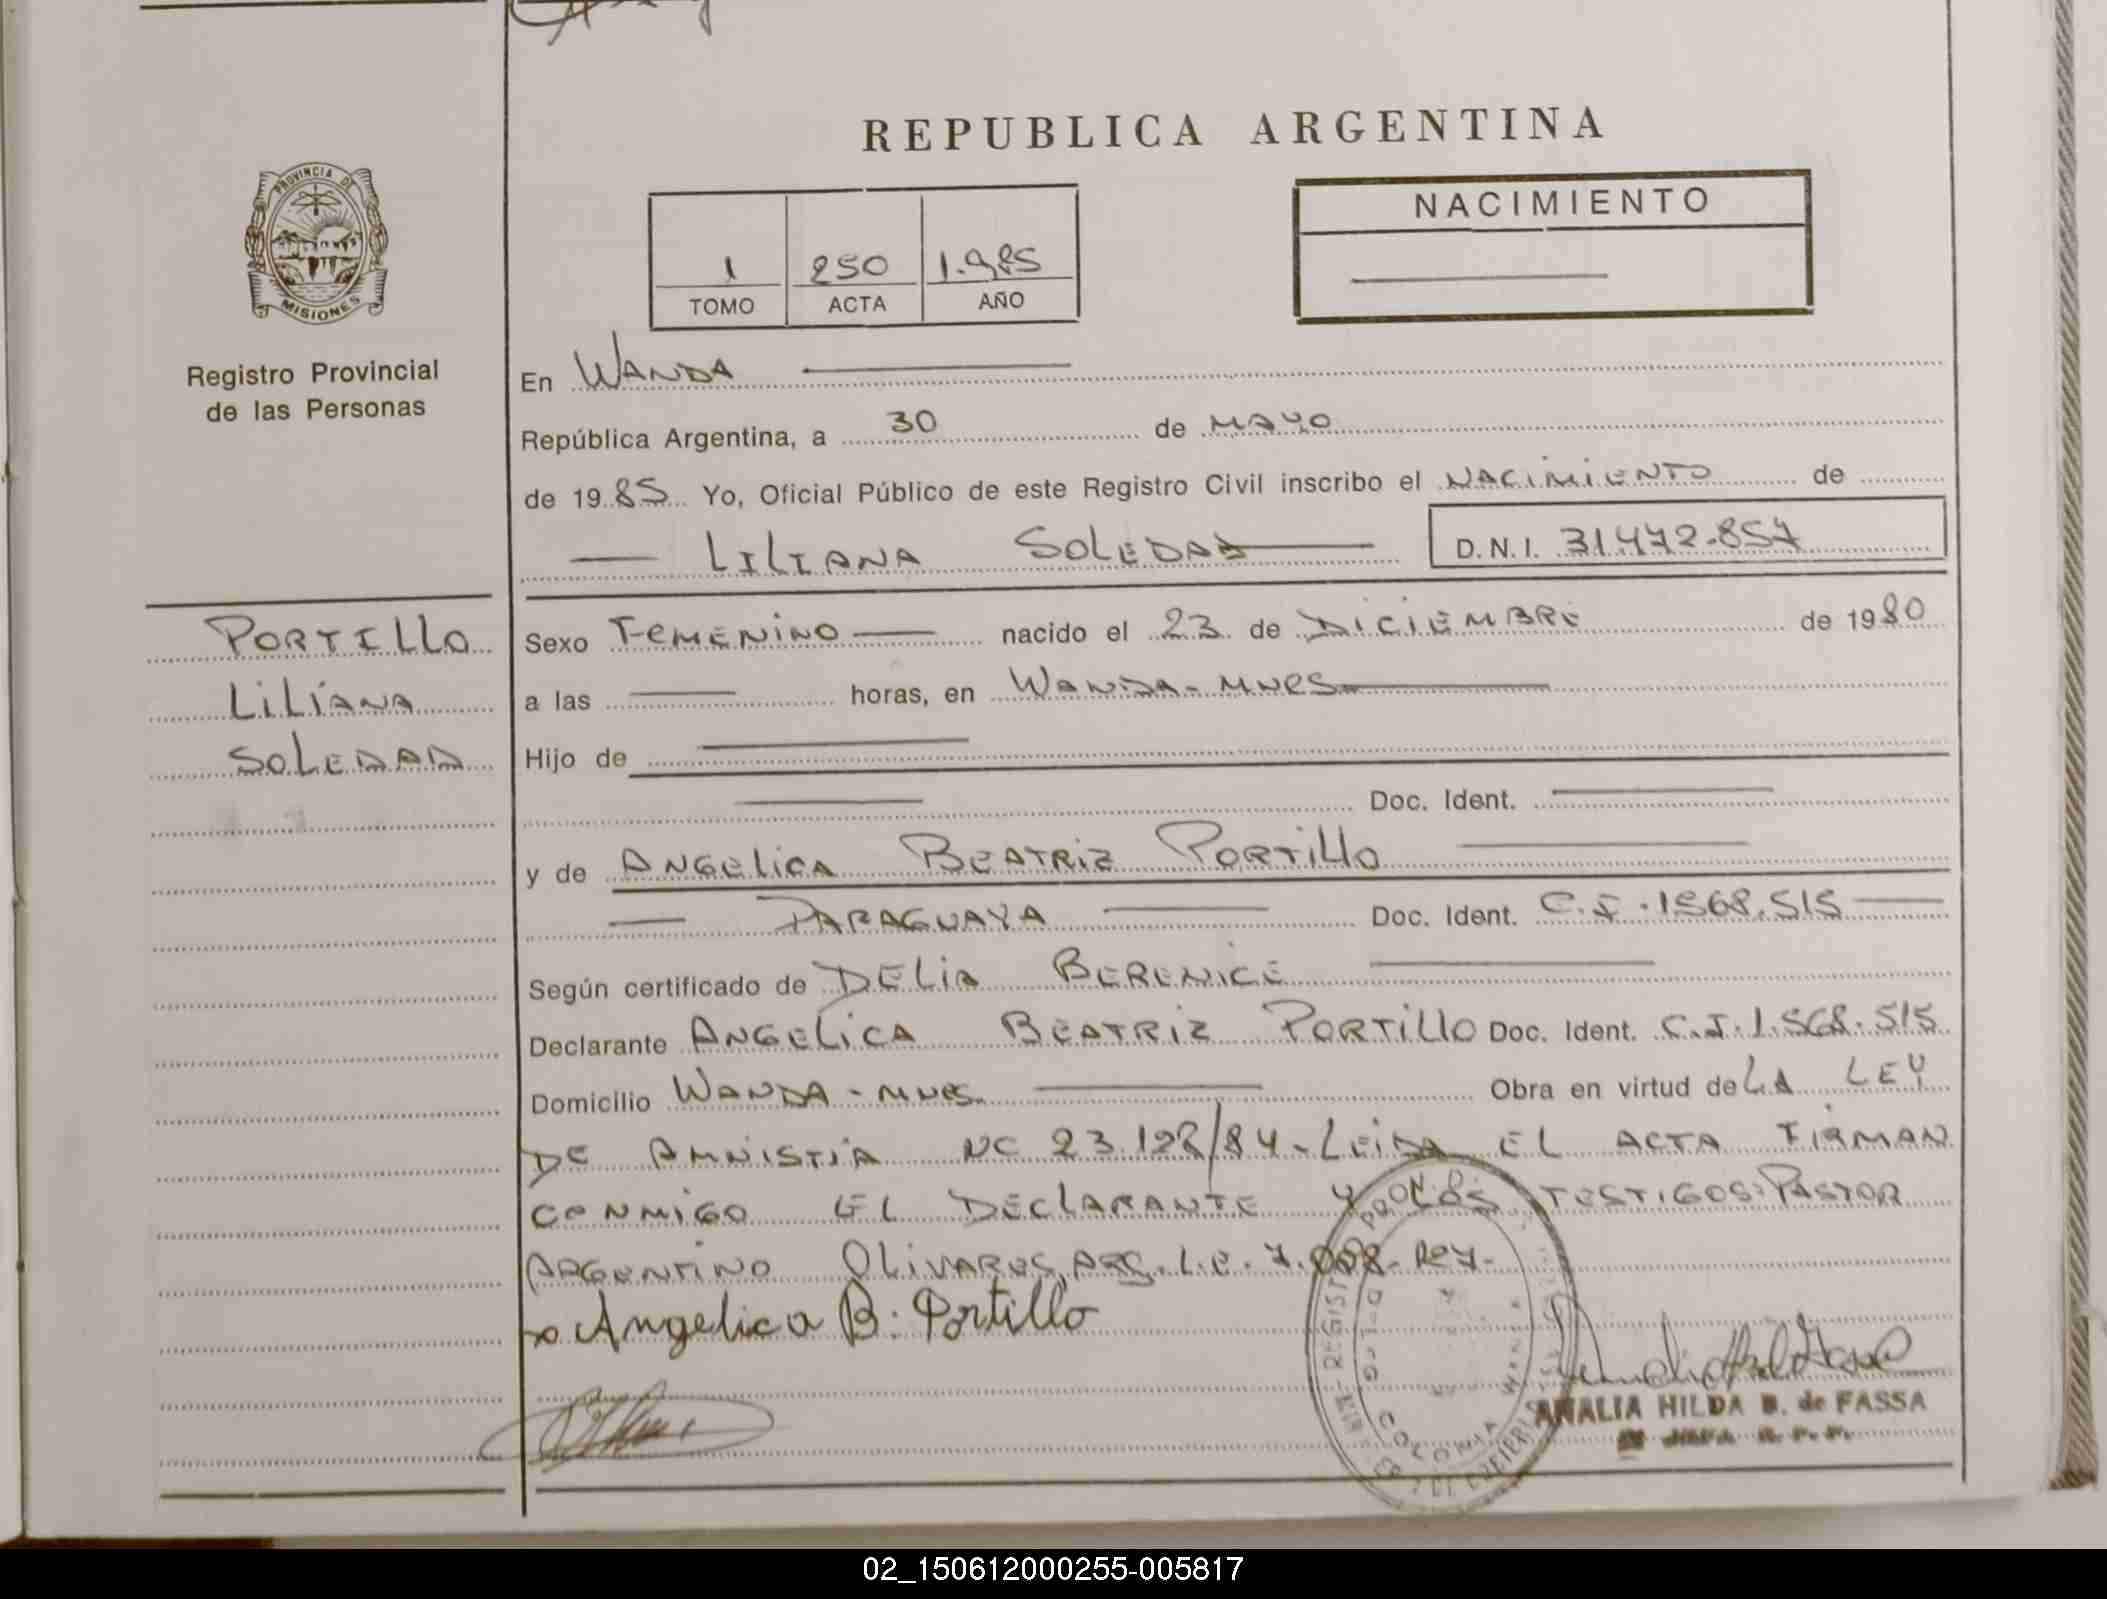 REPUBLICA ARGENTINA
PROVINCIA DE
MISIONES
Registro Provincial
de las Personas
1 250 1.985
TOMO ACTA AÑO
NACIMIENTO
En WANDA
República Argentina, a 30 de MAYO
de 1985 Yo, Oficial Público de este Registro Civil inscribo el NACIMIENTO de
LILIANA SOLEDAD D.N.I. 31.472.857
PORTILLO
LILIANA
SOLEDAD
Sexo FEMENINO nacido el 23 de DICIEMBRE de 1980
a las horas, en WANDA-MNES
Hijo de
Doc. Ident.
y de ANGELICA BEATRIZ PORTILLO
PARAGUAYA Doc. Ident. C.I.1568.515
Según certificado de DELIA BERENICE
Declarante ANGELICA BEATRIZ PORTILLO Doc. Ident. C.I.1.568.515
Domicilio WANDA-MNES Obra en virtud de LA LEY
DE AMNISTIA NC 23.128/84-LEIDA EL ACTA FIRMAN
CONMIGO EL DECLARANTE Y LOS TESTIGOS:PASTOR
ARGENTINO OLIVARES, ARG. L.E. 7.
Angelica B. Portillo
COLONIA WANDA
ANALIA HILDA B. de FASSA
JEFA R. P. P.
02_150612000255-005817